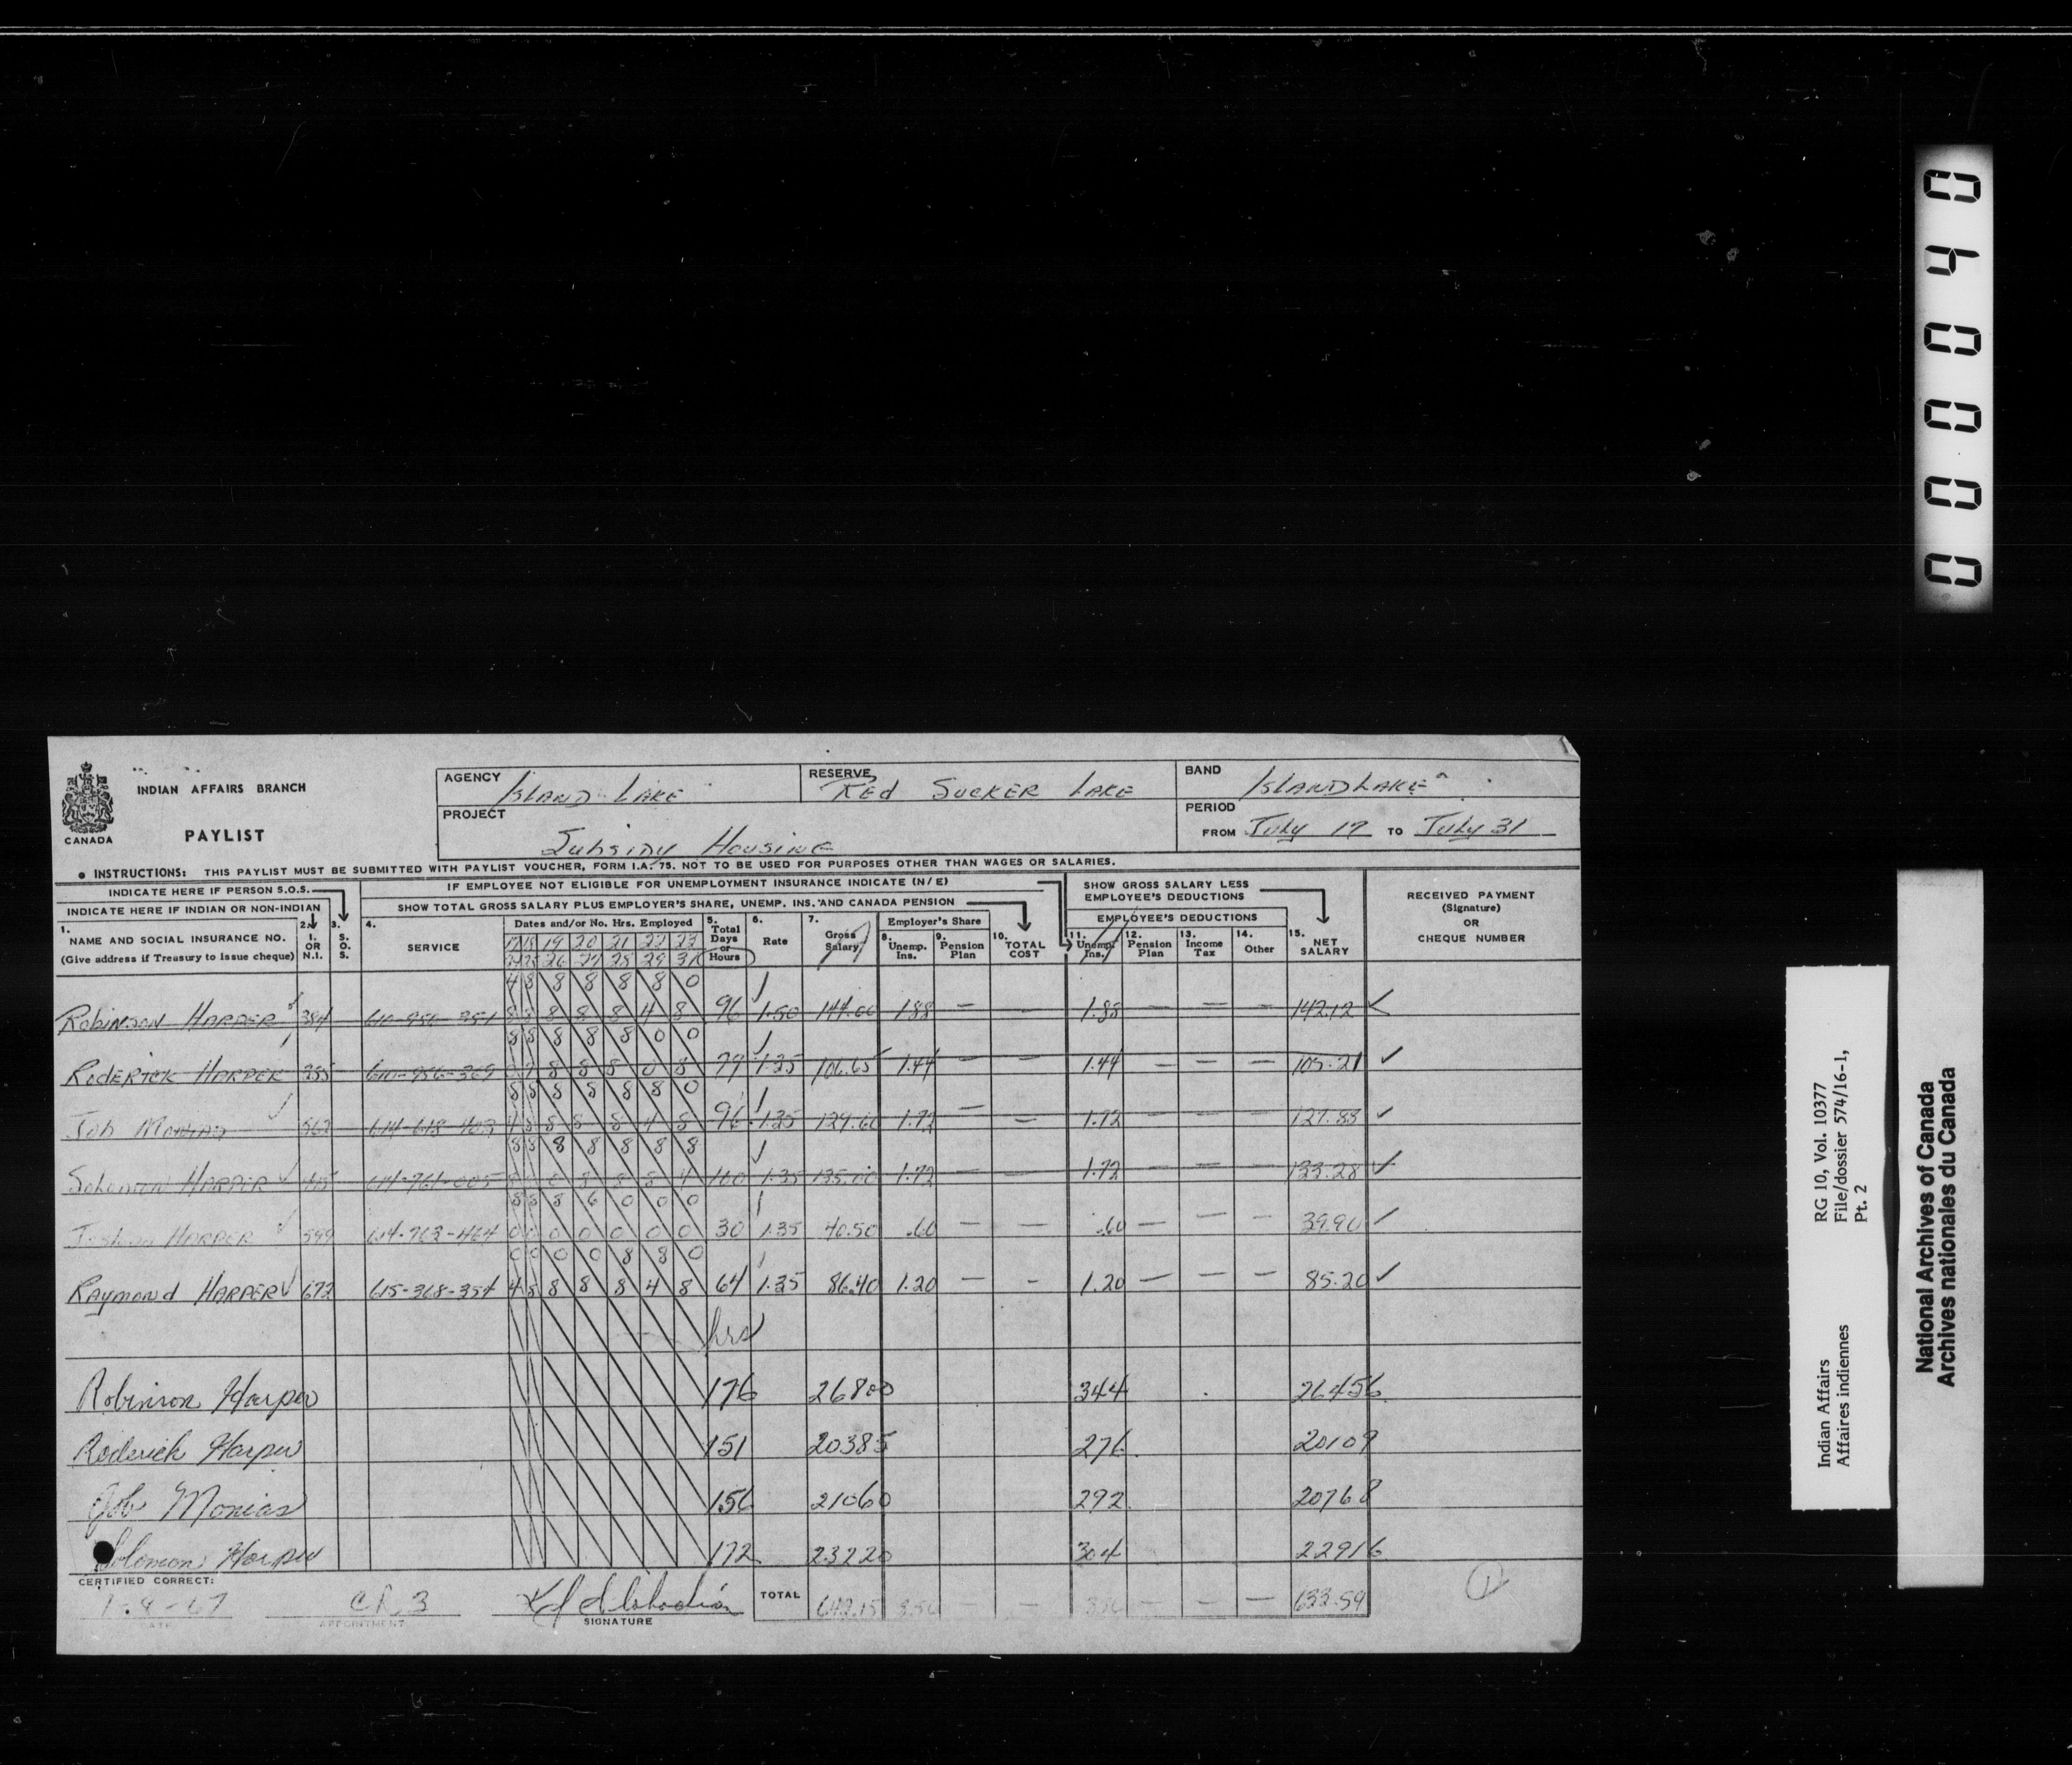 000040
INDIAN AFFAIRS BRANCH
PAYLIST
CANADA
AGENCY ISLAND LAKE
RESERVE REd SUCKER LAKE
BAND ISLAND LAKE
PROJECT Subsidy Housing
PERIOD
FROM July 17 TO July 31
• INSTRUCTIONS: THIS PAYLIST MUST BE SUBMITTED WITH PAYLIST VOUCHER, FORM I.A. 75. NOT TO BE USED FOR PURPOSES OTHER THAN WAGES OR SALARIES.
INDICATE HERE IF PERSON S.O.S.
INDICATE HERE IF INDIAN OR NON-INDIAN
IF EMPLOYEE NOT ELIGIBLE FOR UNEMPLOYMENT INSURANCE INDICATE (N/E)
SHOW TOTAL GROSS SALARY PLUS EMPLOYER'S SHARE, UNEMP. INS. AND CANADA PENSION
SHOW GROSS SALARY LESS
EMPLOYEE'S DEDUCTIONS
EMPLOYEE'S DEDUCTIONS
RECEIVED PAYMENT
(Signature)
OR
CHEQUE NUMBER
1. NAME AND SOCIAL INSURANCE NO.
(Give address if Treasury to issue cheque)
2. I. OR N.I.
3. S. O. S.
4. SERVICE
Dates and/or No. Hrs. Employed
17 18 19 20 21 22 23
26 27 28 29 31
5. Total Days or Hours
6. Rate
7. Gross Salary
Employer's Share
8. Unemp. Ins.
9. Pension Plan
10. TOTAL COST
11. Unemp. Ins.
12. Pension Plan
13. Income Tax
14. Other
15. NET SALARY
4 8 8 8 8 8 0
Robinson HARPER 384 610-956-351 8 8 8 8 8 4 8 96 1.50 144.00 1.88 — — 1.88 — — — 142.12
8 8 8 8 8 0 0
RodERICK HARPER 385 610-956-369 8 8 8 0 8 79 1.35 106.65 1.44 — — 1.44 — — — 105.21
8 8 8 8 8 8 0
Job Monias 562 614-618-403 4 8 8 8 8 4 8 96 1.35 129.60 1.72 — — 1.72 — — — 127.88
8 8 8 8 8 8 8
Solomon HARPER 614-761-005 8 8 0 8 8 8 4 100 1.35 135.00 1.72 — — 1.72 — — — 133.28
8 8 8 6 0 0 0
Joshua HARPER 599 614-763-464 0 0 0 0 0 0 0 30 1.35 40.50 .60 — — .60 — — — 39.90
0 0 0 0 8 8 0
RAymond HARPER 672 615-368-354 4 8 8 8 8 4 8 64 1.35 86.40 1.20 — - 1.20 — — — 85.20
hrs
Robinson Harper 176 26800 344 26456
Roderick Harper 151 20385 276 20109
Job Monias 156 21060 292 20768
Solomon Harper 172 23220 304 22916
CERTIFIED CORRECT:
1-8-67 CR 3
DATE APPOINTMENT SIGNATURE
TOTAL 642.15 8.56 — 8.56 — — — 633.59
1
Indian Affairs RG 10, Vol. 10377
Affaires indiennes File/dossier 574/16-1,
Pt. 2
National Archives of Canada
Archives nationales du Canada